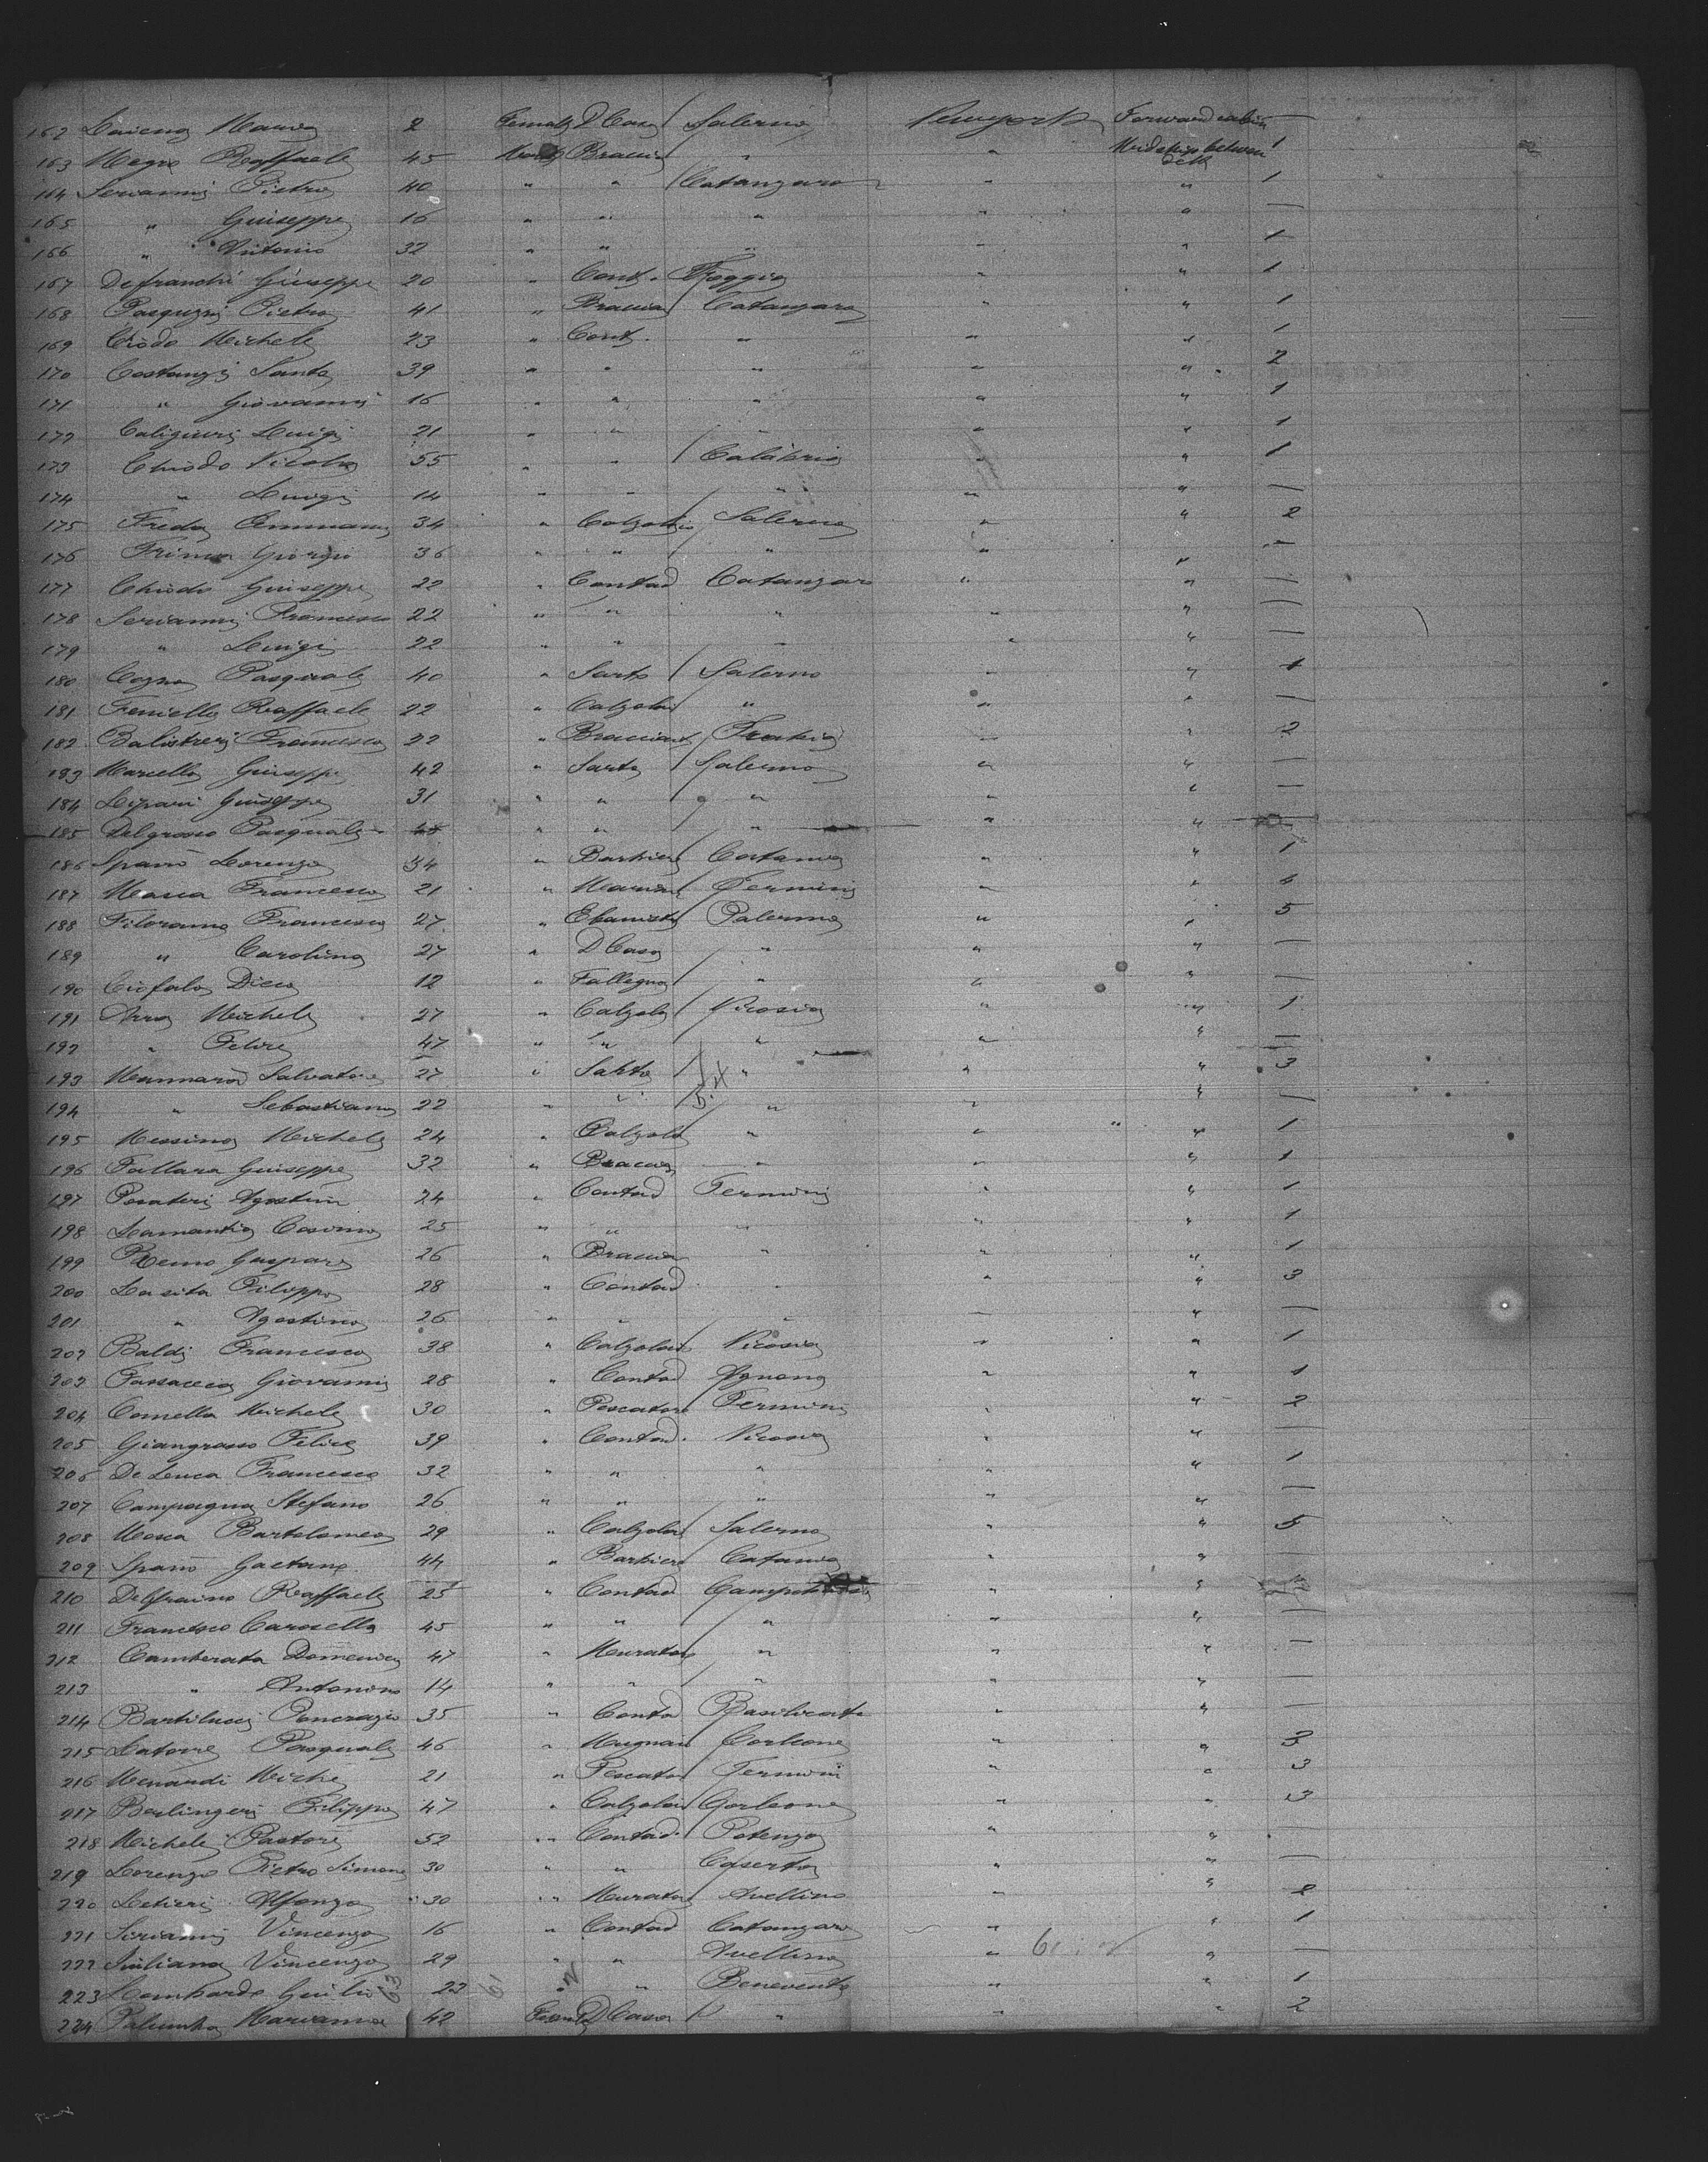 162 Maria 2 Female D Casa Salerno Newyork Forward cabin —
163 Negre Raffaele 45 Male Braccia " " Midships between deck 1
164 Serianni Pietro 40 " " Catanzaro " " 1
165 " Giuseppe 16 " " " " " —
166 " Antonio 32 " " " " " 1
167 Defranchi Giuseppe 20 " Cont. Foggia " " 1
168 Pasquzzi Pietro 41 " Braccia Catanzaro " " 1
169 Chiodo Michele 23 " Cont. " " " 1
170 Costanzi Santo 39 " " " " " 2
171 " Giovanni 16 " " " " " 1
172 Caligiuri Luigi 21 " " " " " 1
173 Chiodo Nicola 55 " " Calabria " " 1
174 " Luigi 14 " " " " " —
175 Freda 34 " Calzolaio Salerno " " 2
176 Giorgio 36 " " " " " —
177 Chiodo Giuseppe 22 " Contad Catanzaro " " —
178 Serianni Francesco 22 " " " " " —
179 " Luigi 22 " " " " " —
180 Pasquale 40 " Sarto Salerno " " 1
181 Feniello Raffaele 22 " Calzolai " " " —
182 Balistreri Francesco 22 " Bracciant " " 2
183 Marcello Giuseppe 42 " Sarto Salerno " " —
184 Lipari Giuseppe 31 " " " " " —
185 Delgrosso Pasquale " " " " "
186 Spanò Lorenzo 34 " Barbiere Catania " " 1
187 Mosca Francesco 21 " Marina Termini " "
188 Filoramo Francesco 27 " Ebanista Palermo " " 5
189 " Carolina 27 " D Casa " " " —
190 Ciofalo 12 " Fallegna " " " —
191 Arra Michele 27 " Calzola Nicosia " " 1
192 " Felice 47 " " " " " —
193 Mannarò Salvatore 27 " Sarto " " " 3
194 " Sebastiano 22 " " " " " —
195 Messina Michele 24 " Calzola " " " 1
196 Fallara Giuseppe 32 " Braccia " " " 1
197 Agostin 24 " Contad Termini " " 1
198 Lamantia Cosimo 25 " " " " " 1
199 Gaspare 26 " Braccia " " " 1
200 Lasita Filippo 28 " Contad " " " 3
201 " Agostino 26 " " " " " —
202 Baldi Francesco 38 " Calzolai Nicosia " " 1
203 Passacca Giovanni 28 " Contad Agnona " " 1
204 Comella Michele 30 " Pescatore Termini " " 2
205 Giangrasso Felice 39 " Contad. Nicosia " " —
206 De Luca Francesco 32 " " " " " 1
207 Campagna Stefano 26 " " " " " —
208 Mosca Bartolomeo 29 " Calzolai Salerno " " 5
209 Spanò Gaetano 44 " Barbiere Catania " " —
210 Raffaele 25 " Contad " "
211 Francesco Carosella 45 " " " " " —
212 Camberata Domenico 47 " Murator " " " —
213 " Antonino 14 " " " " " —
214 Bartilucci Pancrazio 35 " Contad Basilicata " " —
215 Latorre Pasquale 46 " Mugnaio Corleone " " 3
216 Menardi Miche 21 " Pescator Termini " " 3
217 Berlingeri Filippo 47 " Calzolai Corleone " " 3
218 Michele Pastore 52 " Contad. Potenza " "
219 Lorenzo Pietro Simone 30 " " Caserta " " —
220 Letieri Alfonzo 30 " Murator Avellino " " 2
221 Serianni Vincenzo 16 " Contad Catanzaro " " 1
222 Juliano Vincenzo 29 " " Avellino " " —
223 Lombardo Giulio 22 " " Benevento " " 1
224 Palumbo Marianna 42 Female D Casa " " " 2